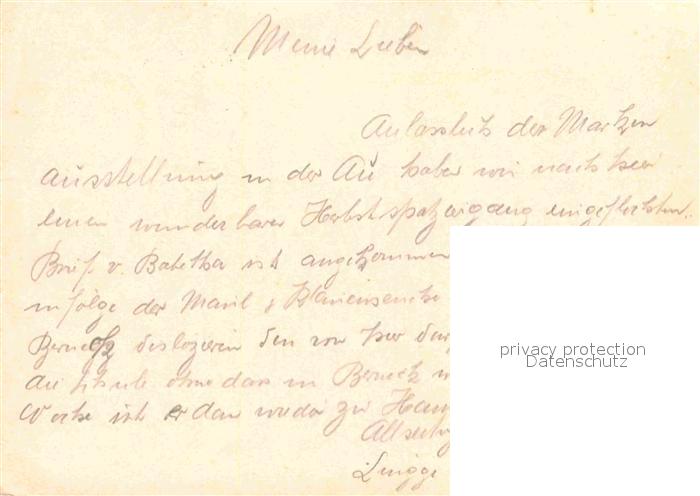 Meine Lieben
Anlässlich der Marken
ausstellung in der Au haben wir nach hier
einen wunderbaren Herbstspatziergang eingeflochten.
Brief v. Babetha ist angekommen
infolge der Maul & Klauenseuche
Berneck dislozieren den von hier
die Schule ohne dass in Berneck
Woche ist er dan wieder zu
privacy protection
Datenschutz